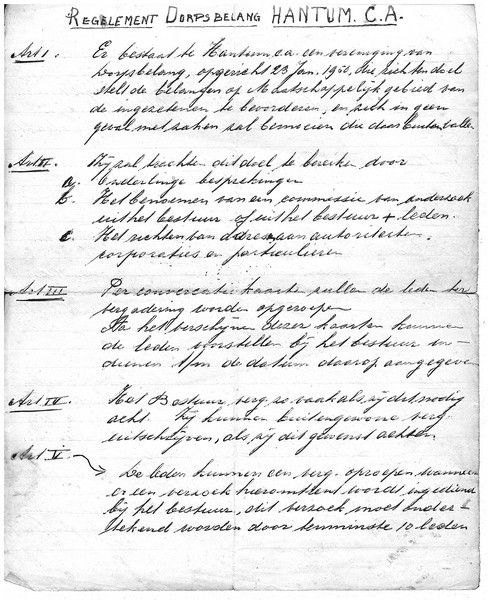 REGELEMENT DORPSBELANG HANTUM. C.A.
Art I. Er bestaat te Hantum c.a. een vereniging van
Dorpsbelang, opgericht 23 Jan. 1950, die zich ten doel
stelt de belangen op Maatschappelijk gebied van
de ingezetenen te bevorderen, en zich in geen
geval met zaken zal bemoeien die daar buiten vallen
Art II. Zij zal trachten dit doel te bereiken door
a. Onderlinge besprekingen
b. Het benoemen van een commissie van onderzoek
uit het bestuur of uit het bestuur + leden.
c. Het richten van adres aan autoriteiten,
corporaties en particulieren
Art III Per convocatie kaarten zullen de leden ter
vergadering worden opgeroepen
Na het verschijnen dezer kaarten kunnen
de leden voorstellen bij het bestuur in-
dienen t/m de datum daarop aangegeven
Art IV. Het Bestuur verg. zo vaak als zij dit nodig
acht. Zij kunnen buitengewone verg.
uitschrijven, als zij dit gewenst achten
Art V
De leden kunnen een verg. oproepen wanneer
er een verzoek hieromtrent wordt ingediend
bij het bestuur, dit verzoek moet onder-
tekend worden door tenminste 10 leden